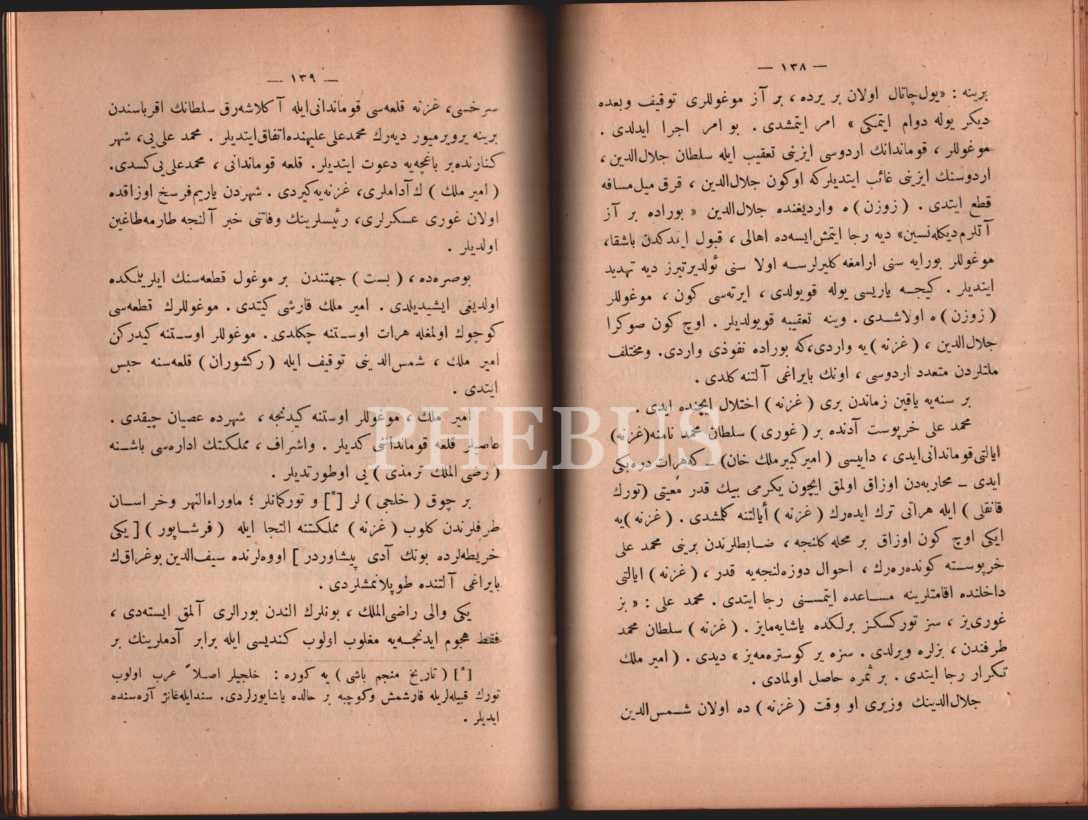 — ١٣٨ —
برينه : «يول چاتال اولان بر يرده ، بر آز موغوللری توقيف وبعده
ديكر يوله دوام ايتمكی » امر ايتمشدی . بو امر اجرا ايدلدی .
موغوللر ، قوماندانك اردوسی ايزنی تعقيب ايله سلطان جلال‌الدين ،
اردوسنك ايزنی غائب ايتديلركه اوكون جلال‌الدين ، قرق ميل مسافه
قطع ايتدی . ( زوزن ) ه وارديغنده جلال‌الدين « بوراده بر آز
آتلرم ديكله‌نسين» ديه رجا ايتمش‌ايسه‌ده اهالی ، قبول ايتدكدن باشقا،
موغوللر بورايه سنی ارامغه كليرلرسه اولا سنی ئولديرتيرز ديه تهديد
ايتديلر . كيجه ياريسی يوله قويولدی ، ايرته‌سی كون ، موغوللر
( زوزن ) ه اولاشدی . وينه تعقيبه قويولديلر . اوچ كون صوكرا
جلال‌الدين ، ( غزنه ) يه واردی،كه بوراده نفوذی واردی. ومختلف
ملتلردن متعدد اردوسی ، اونك بايراغی آلتنه كلدی .
بر سنه‌يه ياقين زماندن بری ( غزنه ) اختلال ايچنده ايدی .
محمد علی خرپوست آدنده بر ( غوری ) سلطان محمد نامنه (غزنه)
ايالتی قوماندانی‌ايدی ، داييسی ( اميركبير ملك خان) ـ كه هرات دره‌بكی
ايدی ـ محاربه‌دن اوزاق اولمق ايچون يكرمی بيك قدر معيتی (تورك
قانقلی ) ايله هراتی ترك ايدەرك ( غزنه ) أيالتنه كلمشدی . ( غزنه )يه
ايكی اوچ كون اوزاق بر محله كلنجه ، ضابطلرندن برينی محمد علی
خرپوسته كوندەرەرك ، احوال دوزەلنجه‌يه قدر ، ( غزنه ) ايالتی
داخلنده اقامتلرينه مساعده ايتمسنی رجا ايتدی . محمد علی : « بز
غوری‌يز ، سز توركسكز برلكده ياشايه‌مايز . ( غزنه ) سلطان محمد
طرفندن ، بزلره ويرلدی . سزه ير كوستره‌مه‌يز » ديدی . ( امير ملك
تكرار رجا ايتدی . بر ثمره حاصل اولمادی .
جلال‌الدينك وزيری او وقت ( غزنه ) ده اولان شمس‌الدين
— ١٣٩ —
سرخسی، غزنه قلعه‌سی قوماندانی‌ايله آكلاشه‌رق سلطانك اقرباسندن
برينه يرويرميور ديەرك محمدعلی عليهنده‌اتفاق‌ايتديلر. محمد علی‌يی، شهر
كنارنده‌بر باغچه‌يه دعوت ايتديلر. قلعه قوماندانی ، محمدعلی‌يی كسدی.
( امير ملك ) ك آداملری، غزنه‌يه‌كيردی . شهردن ياريم‌فرسخ اوزاقده
اولان غوری عسكرلری، رئيسلرينك وفاتنی خبر آلنجه طارمه‌طاغين
اولديلر .
بوصره‌ده ، ( بست ) جهتندن بر موغول قطعه‌سنك ايلريلمكده
اولديغی ايشيديلدی . امير ملك قارشی كيتدی . موغوللرك قطعه‌سی
كوچوك اولمغله هرات اوستنه چكلدی. موغوللر اوستنه كيدركن
أمير ملك ، شمس‌الدينی توقيف ايله ( ركشوران ) قلعه‌سنه حبس
ايتدی .
أمير ملك ، موغوللر اوستنه كيدنجه ، شهرده عصيان چيقدی .
عاصيلر قلعه قوماندانی كديلر . واشراف ، مملكتك اداره‌سی باشنه
( رضی الملك ترمذی ) يی اوطورتديلر .
بر چوق ( خلجی ) لر [*] و توركمانلر ؛ ماوراءالنهر وخراسان
طرفلرندن كلوب ( غزنه ) مملكتنه التجا ايله ( فرشاپور ) [يكی
خريطه‌لرده بونك آدی پيشاوردر ] اووه‌لرنده سيف‌الدين بوغراق‌ك
بايراغی آلتنده طوپلانمشلردی .
يكی والی راضی‌الملك ، بونلرك الندن بورالری آلمق ايسته‌دی ،
فقط هجوم ايدنجه‌يه مغلوب اولوب كنديسی ايله برابر آدملرينك بر
[*] ( تاريخ منجم باشی ) يه كوره : خلجيلر اصلاً عرب اولوب
تورك قبيله‌لريله قارشمش وكوچبه بر حالده ياشايورلردی. سندايله‌غانژ آره‌سنده
ايديلر .
PHEBUS